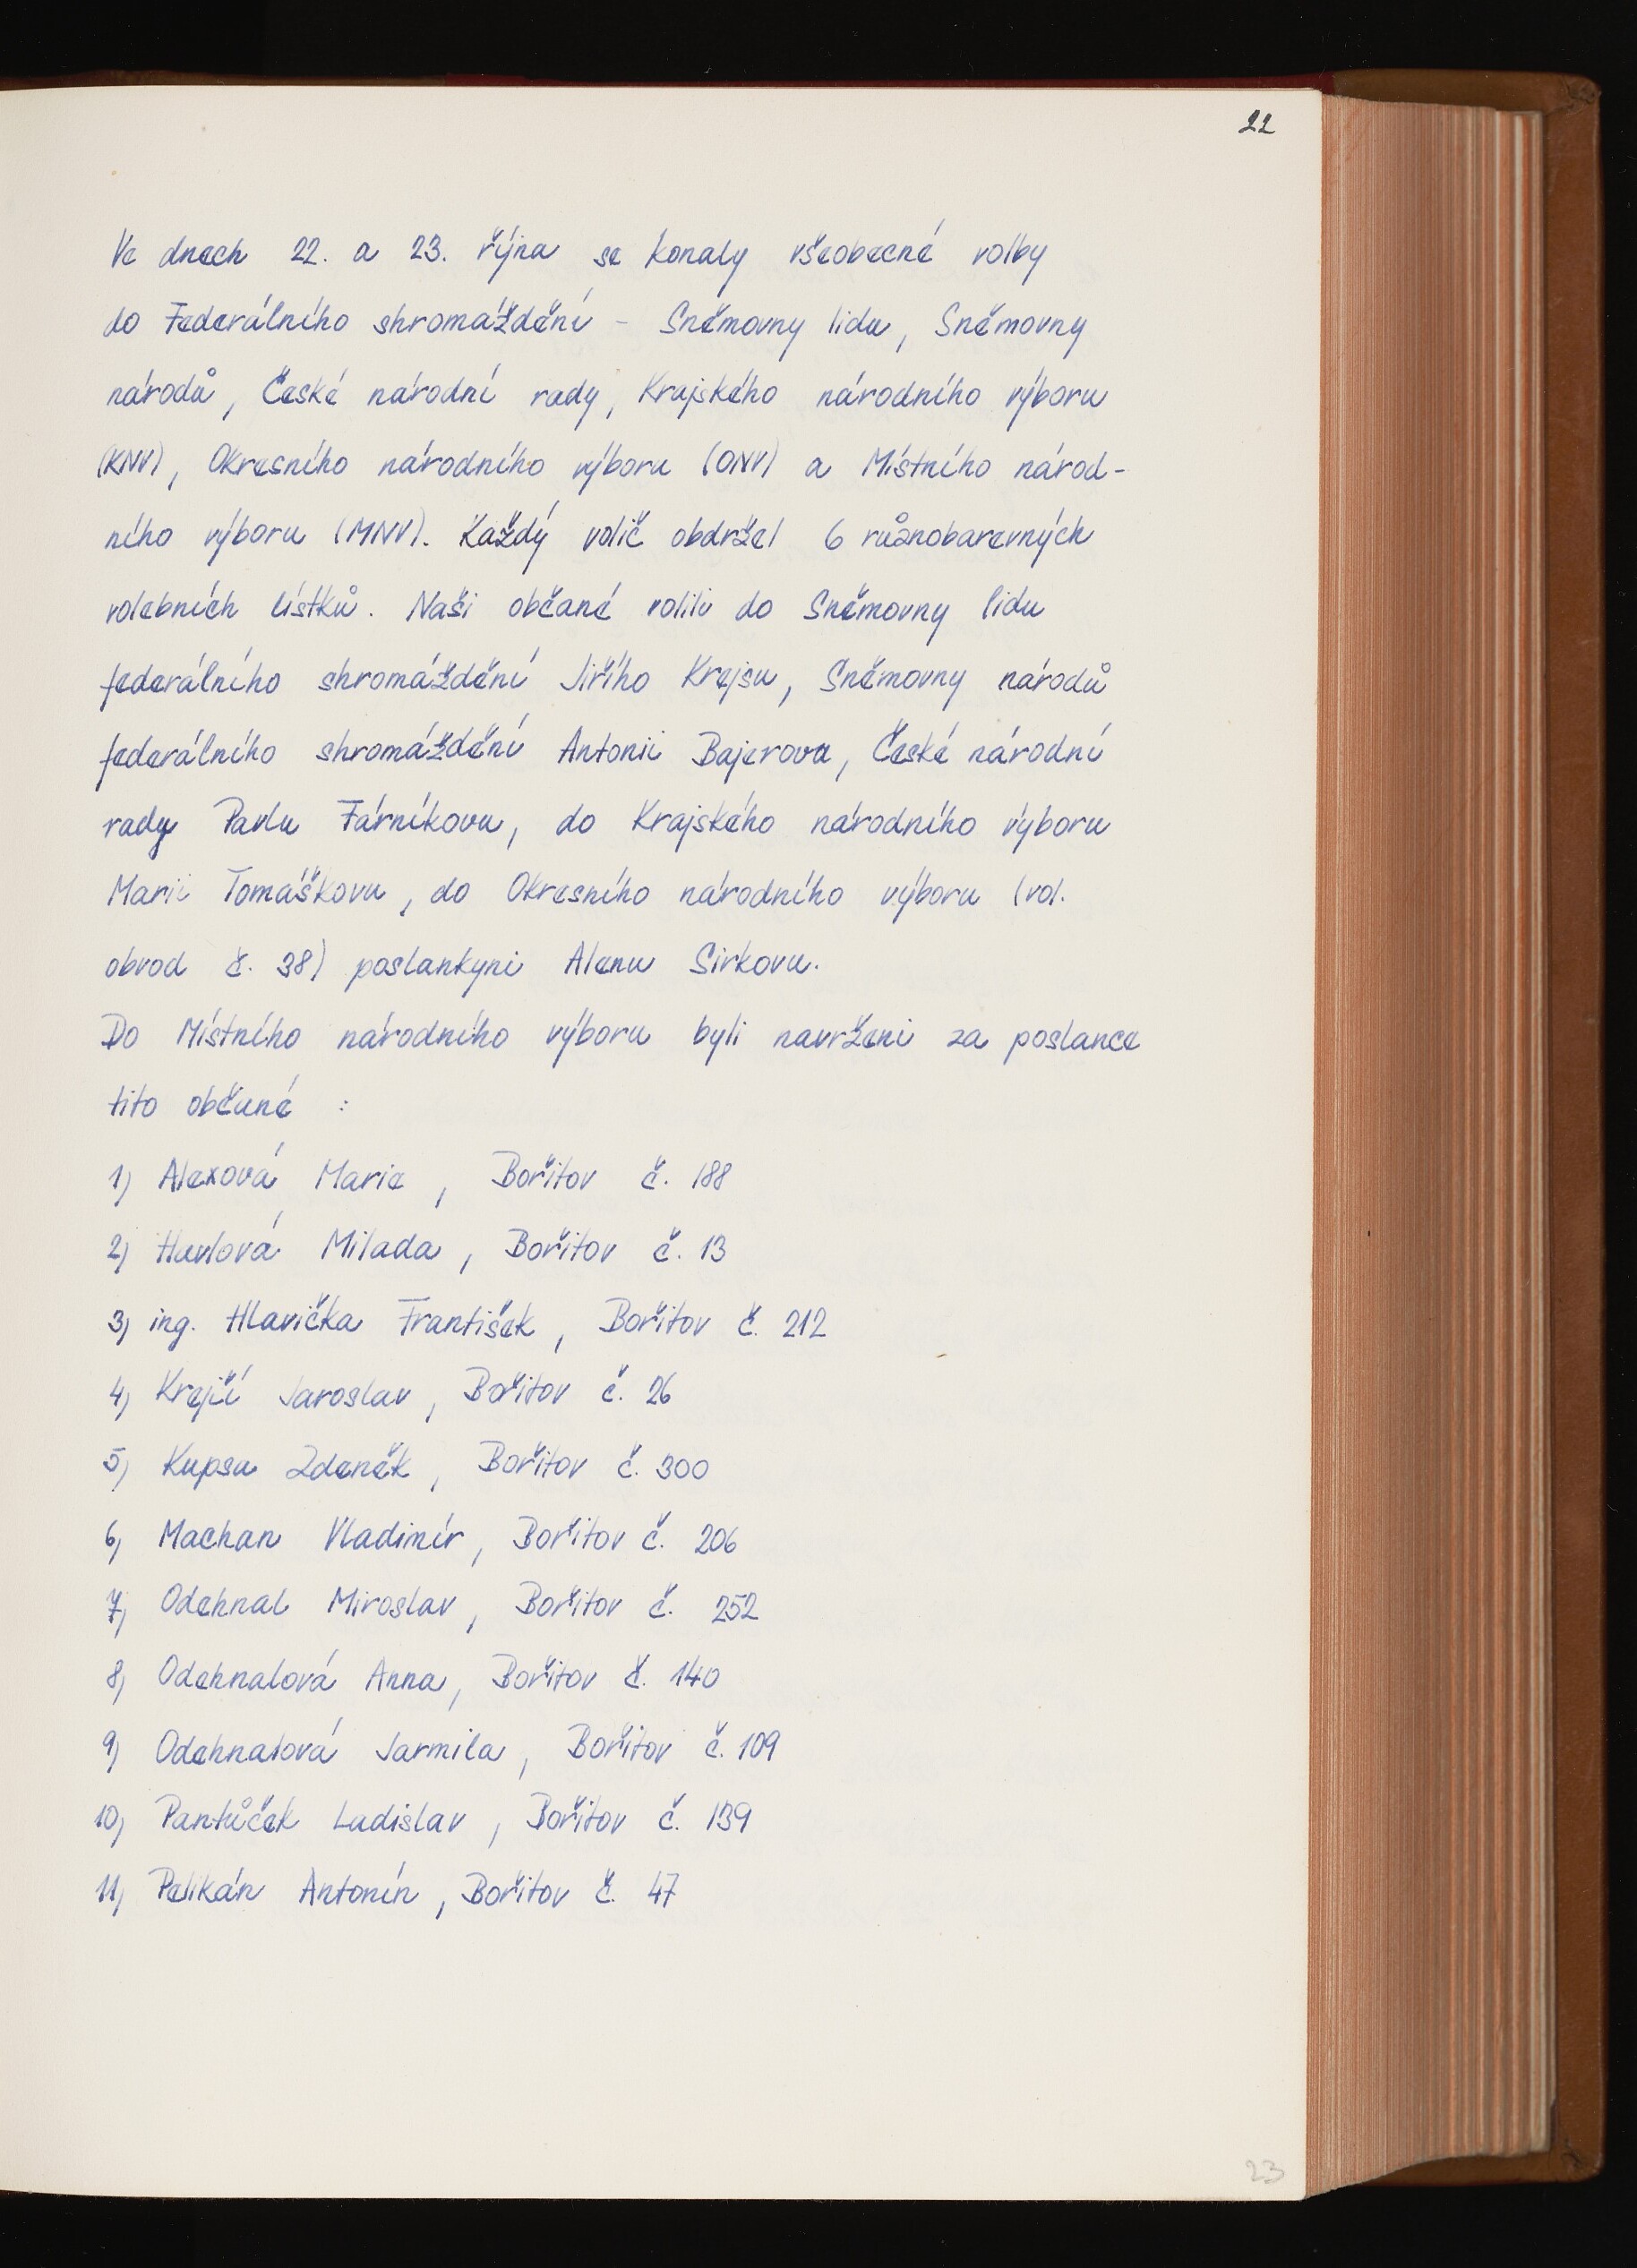 22
Ve dnech 22. a 23. října se konaly všeobecné volby
do Federálního shromáždění - Sněmovny lidu, Sněmovny
národů, České národní rady, Krajského národního výboru
(KNV), Okresního národního výboru (ONV) a Místního národ-
ního výboru (MNV). Každý volič obdržel 6 různobarevných
volebních lístků. Naši občané volili do Sněmovny lidu
federálního shromáždění Jiřího Krejsu, Sněmovny národů
federálního shromáždění Antonii Bajerova, České národní
rady Pavlu Fárníkovu, do Krajského národního výboru
Marii Tomáškovu, do Okresního národního výboru (vol.
obvod č. 38) poslankyni Alenu Sirkovu.
Do Místního národního výboru byli navrženi za poslance
tito občané :
1) Alexová Marie, Bořitov č. 188
2) Havlová Milada, Bořitov č. 13
3) ing. Hlavička František, Bořitov č. 212
4) Krejčí Jaroslav, Bořitov č. 26
5) Kupsa Zdeněk, Bořitov č. 300
6) Machan Vladimír, Bořitov č. 206
7) Odehnal Miroslav, Bořitov č. 252
8) Odehnalová Anna, Bořitov č. 140
9) Odehnalová Jarmila, Bořitov č. 109
10) Pantůček Ladislav, Bořitov č. 139
11) Pelikán Antonín, Bořitov č. 47
23